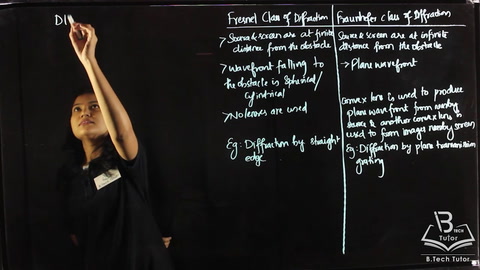 DI
Fresnel Class of Diffraction
> Source & screen are at finite
distance from the obstacle
> Wavefront falling to
the obstacle is Spherical/
Cylindrical
> No lenses are used
Eg: Diffraction by straight
edge
Fraunhofer Class of Diffraction
Source & screen are at infinite
distance from the obstacle
→ Plane wavefront
Convex lens is used to produce
plane wavefront from nearby
& another convex lens is
used to form image nearby screen
Eg: Diffraction by plane transmission
grating
B TECH
Tutor
B.Tech Tutor